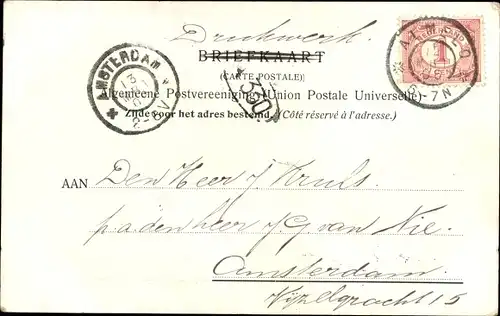 Drukwerk.
BRIEFKAART
(CARTE POSTALE)
Algemeene Postvereeniging (Union Postale Universelle)
Zijde voor het adres bestemd. (Côté réservé à l'adresse.)
AMSTERDAM
NEDERLAND
1
5-7N
330
AAN Den Heer J. Kruls
p.a. den heer J. G. van Nie.
Amsterdam.
Vijzelgracht 15